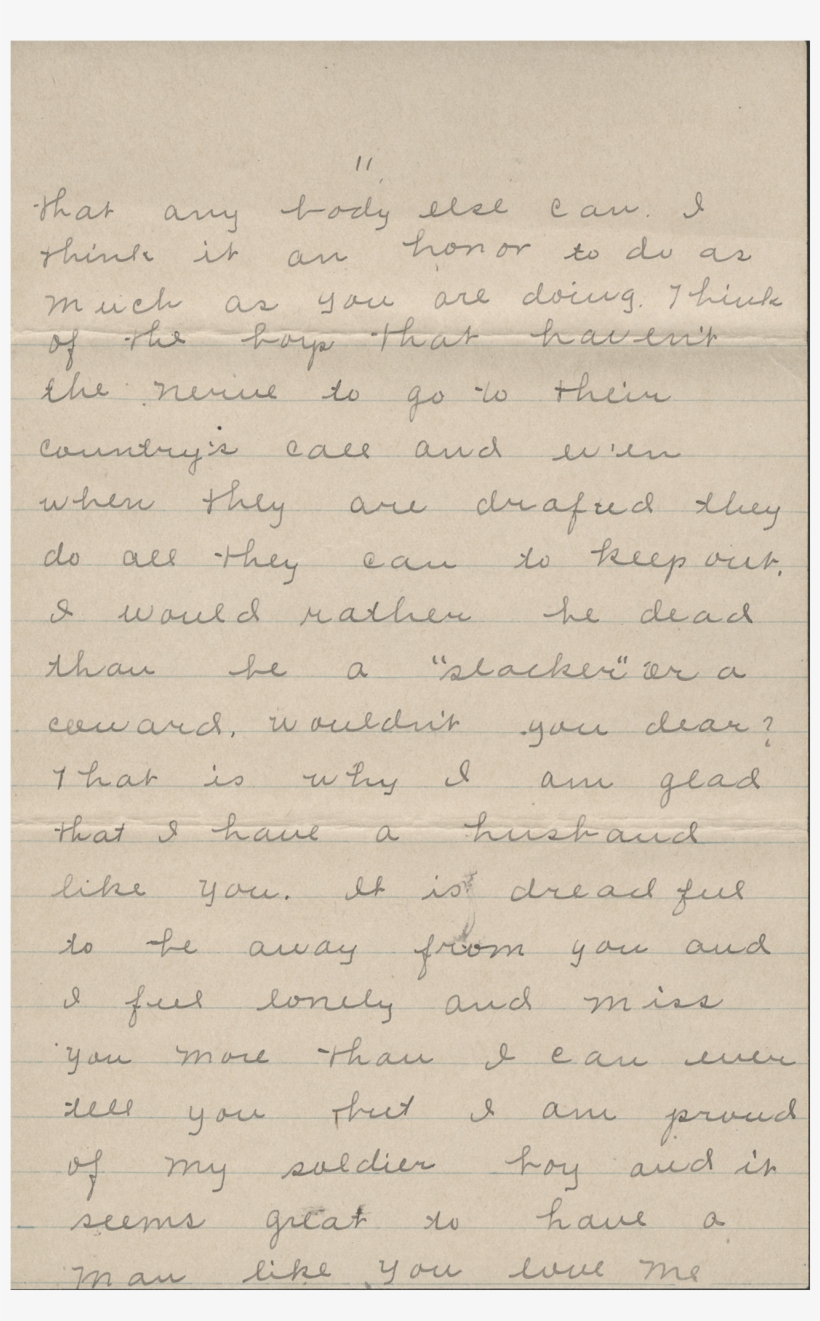 11
that any body else can. I
think it an honor to do as
much as you are doing. Think
of the boys that haven't
the nerve to go to their
country's call and ev'en
when they are drafted they
do all they can to keep out.
I would rather be dead
than be a "slacker" or a
coward, wouldn't you dear?
That is why I am glad
that I have a husband
like you. It is dreadful
to be away from you and
I feel lonely and miss
you more than I can ever
tell you but I am proud
of my soldier boy and it
seems great to have a
man like you love me